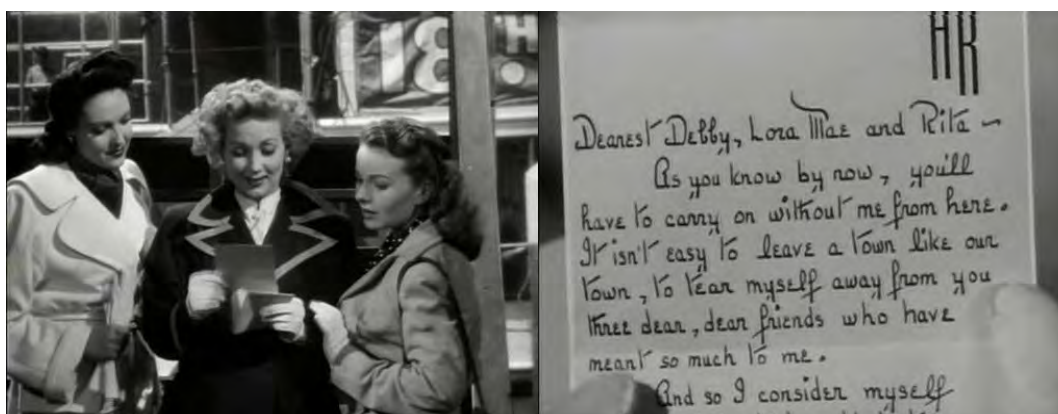 18 TH
HR
Dearest Debby, Lora Mae and Rita —
As you know by now, you'll
have to carry on without me from here.
It isn't easy to leave a town like our
town, to tear myself away from you
three dear, dear friends who have
meant so much to me.
And so I consider myself